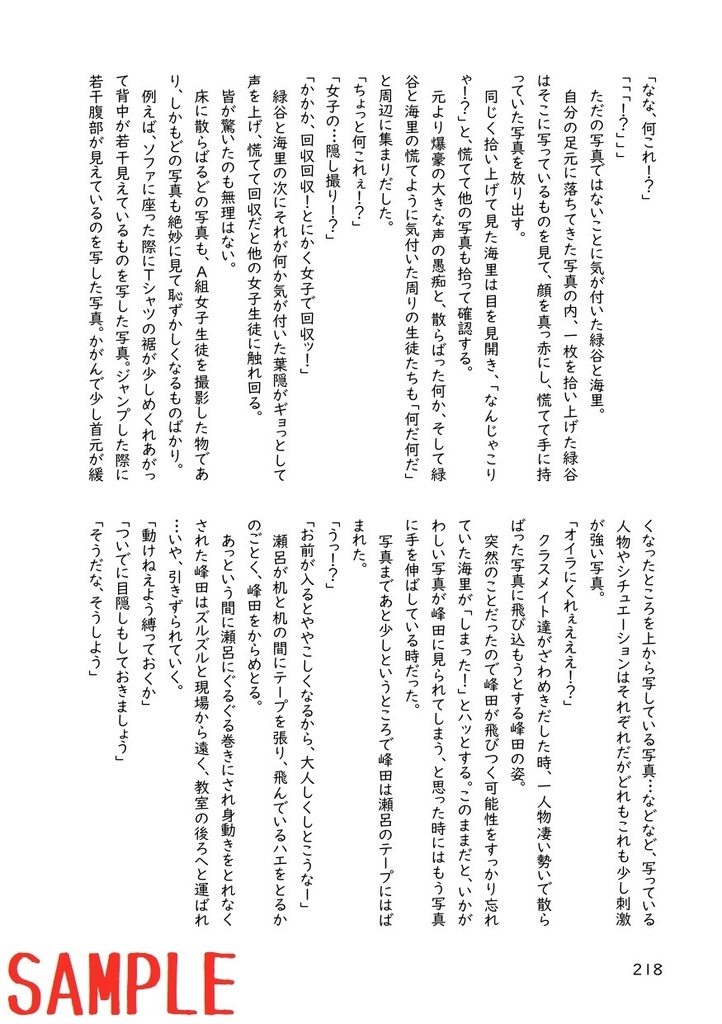 「なな、何これ！？」
「「「！？」」」
　ただの写真ではないことに気が付いた緑谷と海里。
　自分の足元に落ちてきた写真の内、一枚を拾い上げた緑谷
はそこに写っているものを見て、顔を真っ赤にし、慌てて手に持
っていた写真を放り出す。
　同じく拾い上げて見た海里は目を見開き、「なんじゃこり
ゃ！？」と、慌てて他の写真も拾って確認する。
　元より爆豪の大きな声の愚痴と、散らばった何か、そして緑
谷と海里の慌てように気付いた周りの生徒たちも「何だ何だ」
と周辺に集まりだした。
「ちょっと何これぇ！？」
「女子の…隠し撮り！？」
「かかか、回収回収！とにかく女子で回収ッ！」
　緑谷と海里の次にそれが何か気が付いた葉隠がギョっとして
声を上げ、慌てて回収だと他の女子生徒に触れ回る。
　皆が驚いたのも無理はない。
　床に散らばるどの写真も、Ａ組女子生徒を撮影した物であ
り、しかもどの写真も絶妙に見て恥ずかしくなるものばかり。
　例えば、ソファに座った際にＴシャツの裾が少しめくれあがっ
て背中が若干見えているものを写した写真。ジャンプした際に
若干腹部が見えているのを写した写真。かがんで少し首元が緩
くなったところを上から写している写真…などなど、写っている
人物やシチュエーションはそれぞれだがどれもこれも少し刺激
が強い写真。
「オイラにくれぇえええ！？」
　クラスメイト達がざわめきだした時、一人物凄い勢いで散ら
ばった写真に飛び込もうとする峰田の姿。
　突然のことだったので峰田が飛びつく可能性をすっかり忘れ
ていた海里が、「しまった！」とハッとする。このままだと、いかが
わしい写真が峰田に見られてしまう、と思った時にはもう写真
に手を伸ばしている時だった。
　写真まであと少しというところで峰田は瀬呂のテープにはば
まれた。
「うっ！？」
「お前が入るとややこしくなるから、大人しくしとこうなー」
　瀬呂が机と机の間にテープを張り、飛んでいるハエをとるか
のごとく、峰田をからめとる。
　あっという間に瀬呂にぐるぐる巻きにされ身動きをとれなく
された峰田はズルズルと現場から遠く、教室の後ろへと運ばれ
…いや、引きずられていく。
「動けねえよう縛っておくか」
「ついでに目隠しもしておきましょう」
「そうだな、そうしよう」
218
SAMPLE